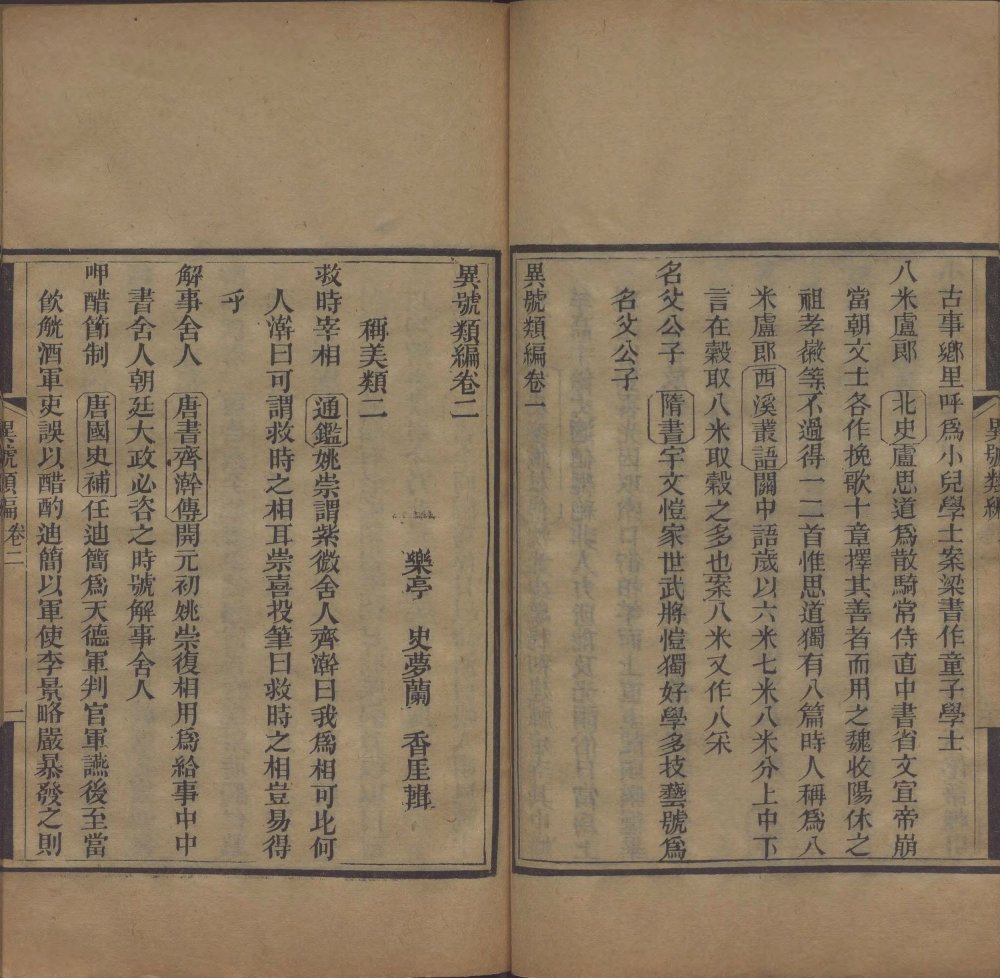 古事鄉里呼爲小兒學士案梁書作童子學士
八米盧郎 北史盧思道爲散騎常侍直中書省文宣帝崩
當朝文士各作挽歌十章擇其善者而用之魏收陽休之
祖孝徵等不過得一二首惟思道獨有八篇時人稱爲八
米盧郎西溪叢語關中語歲以六米七米八米分上中下
言在穀取八米取穀之多也案八米又作八采
名父公子 隋書宇文愷家世武將愷獨好學多技藝號爲
名父公子
異號類編卷一
異號類編卷二
樂亭 史夢蘭 香厓輯
稱美類二
救時宰相 通鑑姚崇謂紫微舍人齊澣曰我爲相可比何
人澣曰可謂救時之相耳崇喜投筆曰救時之相豈易得
乎
解事舍人 唐書齊澣傳開元初姚崇復相用爲給事中中
書舍人朝廷大政必咨之時號解事舍人
呷醋節制 唐國史補任迪簡爲天德軍判官軍讌後至當
飲觥酒軍吏誤以醋酌迪簡以軍使李景略嚴暴發之則
異號類編 卷二 一